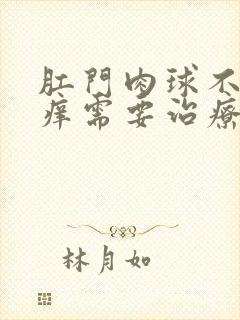 肛門肉球不
痒需要治療
林月如